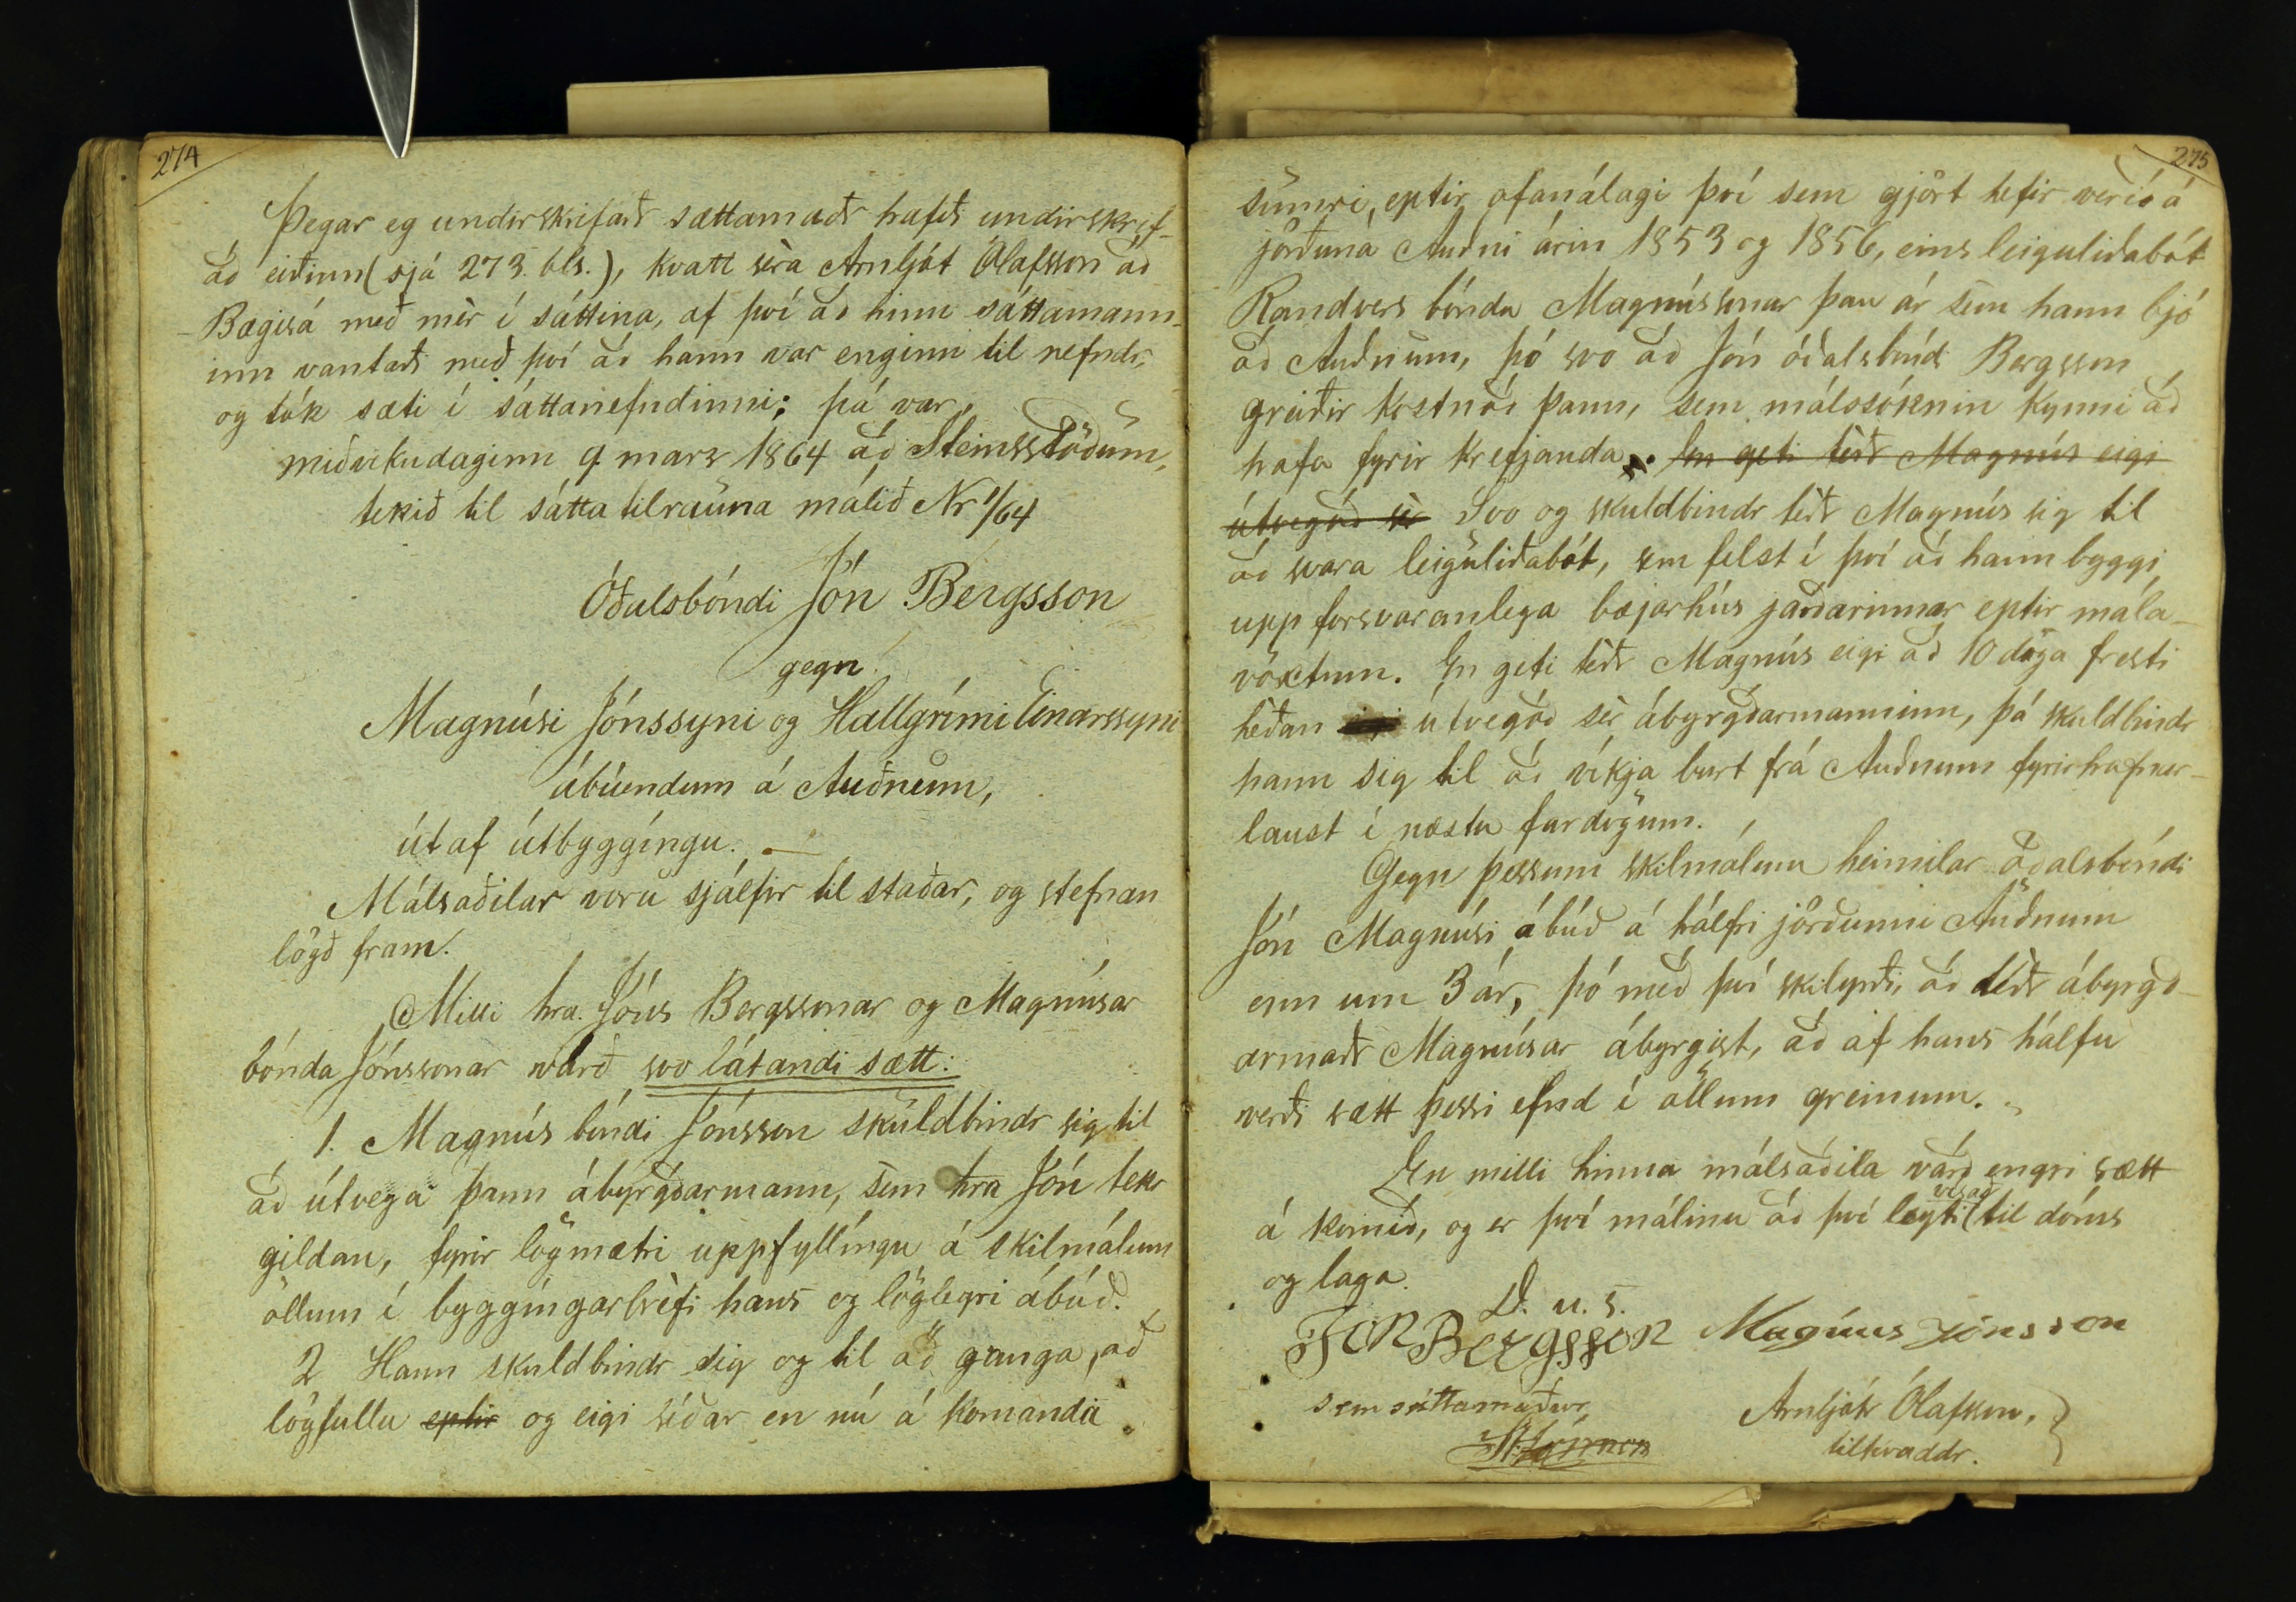 274
Þegar eg undirskrifaðr sættamaðr hafði undirskrif-
að eiðinn (sjá 273. bls.), kvatt séra Arnljót Ólafsson að
Bægisá með mèr í sáttina, af því að hinn sáttamann-
inn vantaði með því að hann var enginn til nefndr,
og tók sæti í sáttanefndinni; þá var,
miðvikudaginn 9 marz 1864 að Steinsstöðum,
tekið til sátta tilrauna málið Nr 1/64
Óðalsbóndi Jón Bergsson
gegn
Magnúsi Jónssyni og Hallgrími Einarssyni
ábúendum á Auðnum,
út af útbyggíngu. —
Málsaðilar voru sjálfir til staðar, og stefnan
lögð fram.
Milli hra. Jóns Bergssonar og Magnúsar
bónda Jónssonar varð svo látandi sætt:
1. Magnús bóndi Jónsson skuldbindr sig til
að útvega þann ábyrgðarmann, sem hra Jón tekr
gildan, fyrir lögmætri uppfyllíngu á skilmálum
öllum í byggíngarbrèfi hans og löglegri ábúð.
2 Hann skuldbindr sig og til að ganga, að
lögfullu eptir og eigi síðar en nú á komanda
275
sumri, eptir ofanálagi því sem gjört hefir verið á
jörðuna Auðni árin 1853 og 1856, eins leiguliðabót
Randvers bónda Magnússonar þau ár sem hann bjó
að Auðnum, þó svo að Jón óðalsbóndi Bergsson
greiðir kostnað þann, sem málssóknin kynni að
hafa fyrir krefjanda. En geti tèðr Magnús eigi
útvegað sèr Svo og skuldbindr tèðr Magnús sig til
að svara leiguliðabót, sem felst í því að hann byggi
upp forsvaranlega bæjarhús jarðarinnar eptir mála-
vöxtum. En geti tèðr Magnús eigi að 10 daga fresti
hèðan útvegað sèr ábyrgðarmanninn, þá skuldbindr
hann sig til að víkja burt frá Auðnum fyrirhafnar-
laust í næstu fardögum.
Gegn þessum skilmálum heimilar óðalsbóndi
Jón Magnúsi ábúð á hálfri jörðunni Auðnum
enn um 3 ár, þó með því skilyrði, að tèðr ábyrgð-
armaðr Magnúsar ábyrgist, að af hans hálfu
verði sætt þessi efnd í öllum greinum.
En milli hinna málsaðila varð engri sætt
á komið, og er því málinu að því leyti vísað til dóms
og laga.
D. u. s.
Jón Bergsson Magnus Jónsson
sem sáttamaður Arnljótr Ólafsson,
tilkvaddr.